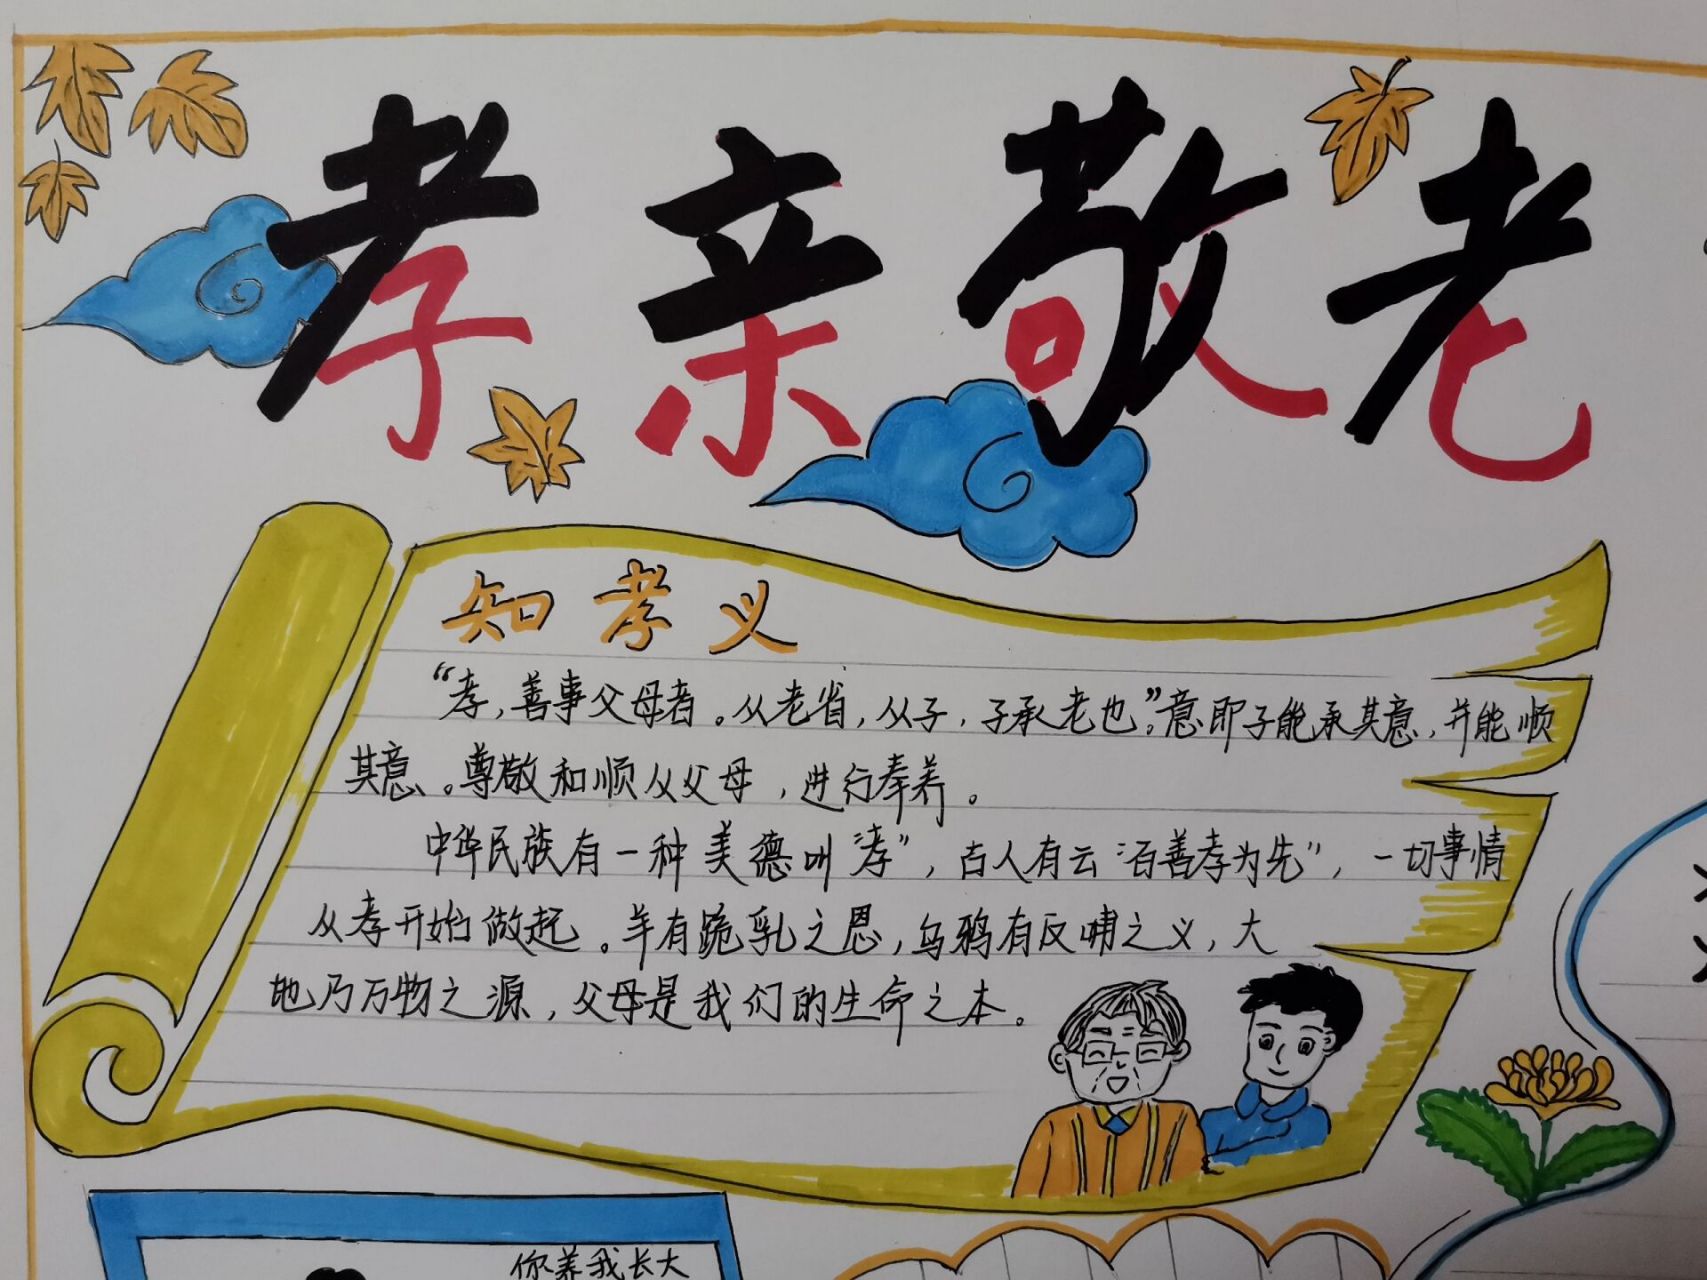 孝亲敬老
知孝义
“孝,善事父母者。从老省,从子,子承老也”。意即子能承其意,并能顺
其意。尊敬和顺从父母,进行奉养。
中华民族有一种美德叫“孝”,古人有云“百善孝为先”,一切事情
从孝开始做起。羊有跪乳之恩,乌鸦有反哺之义,大
地乃万物之源,父母是我们的生命之本。
你养我长大